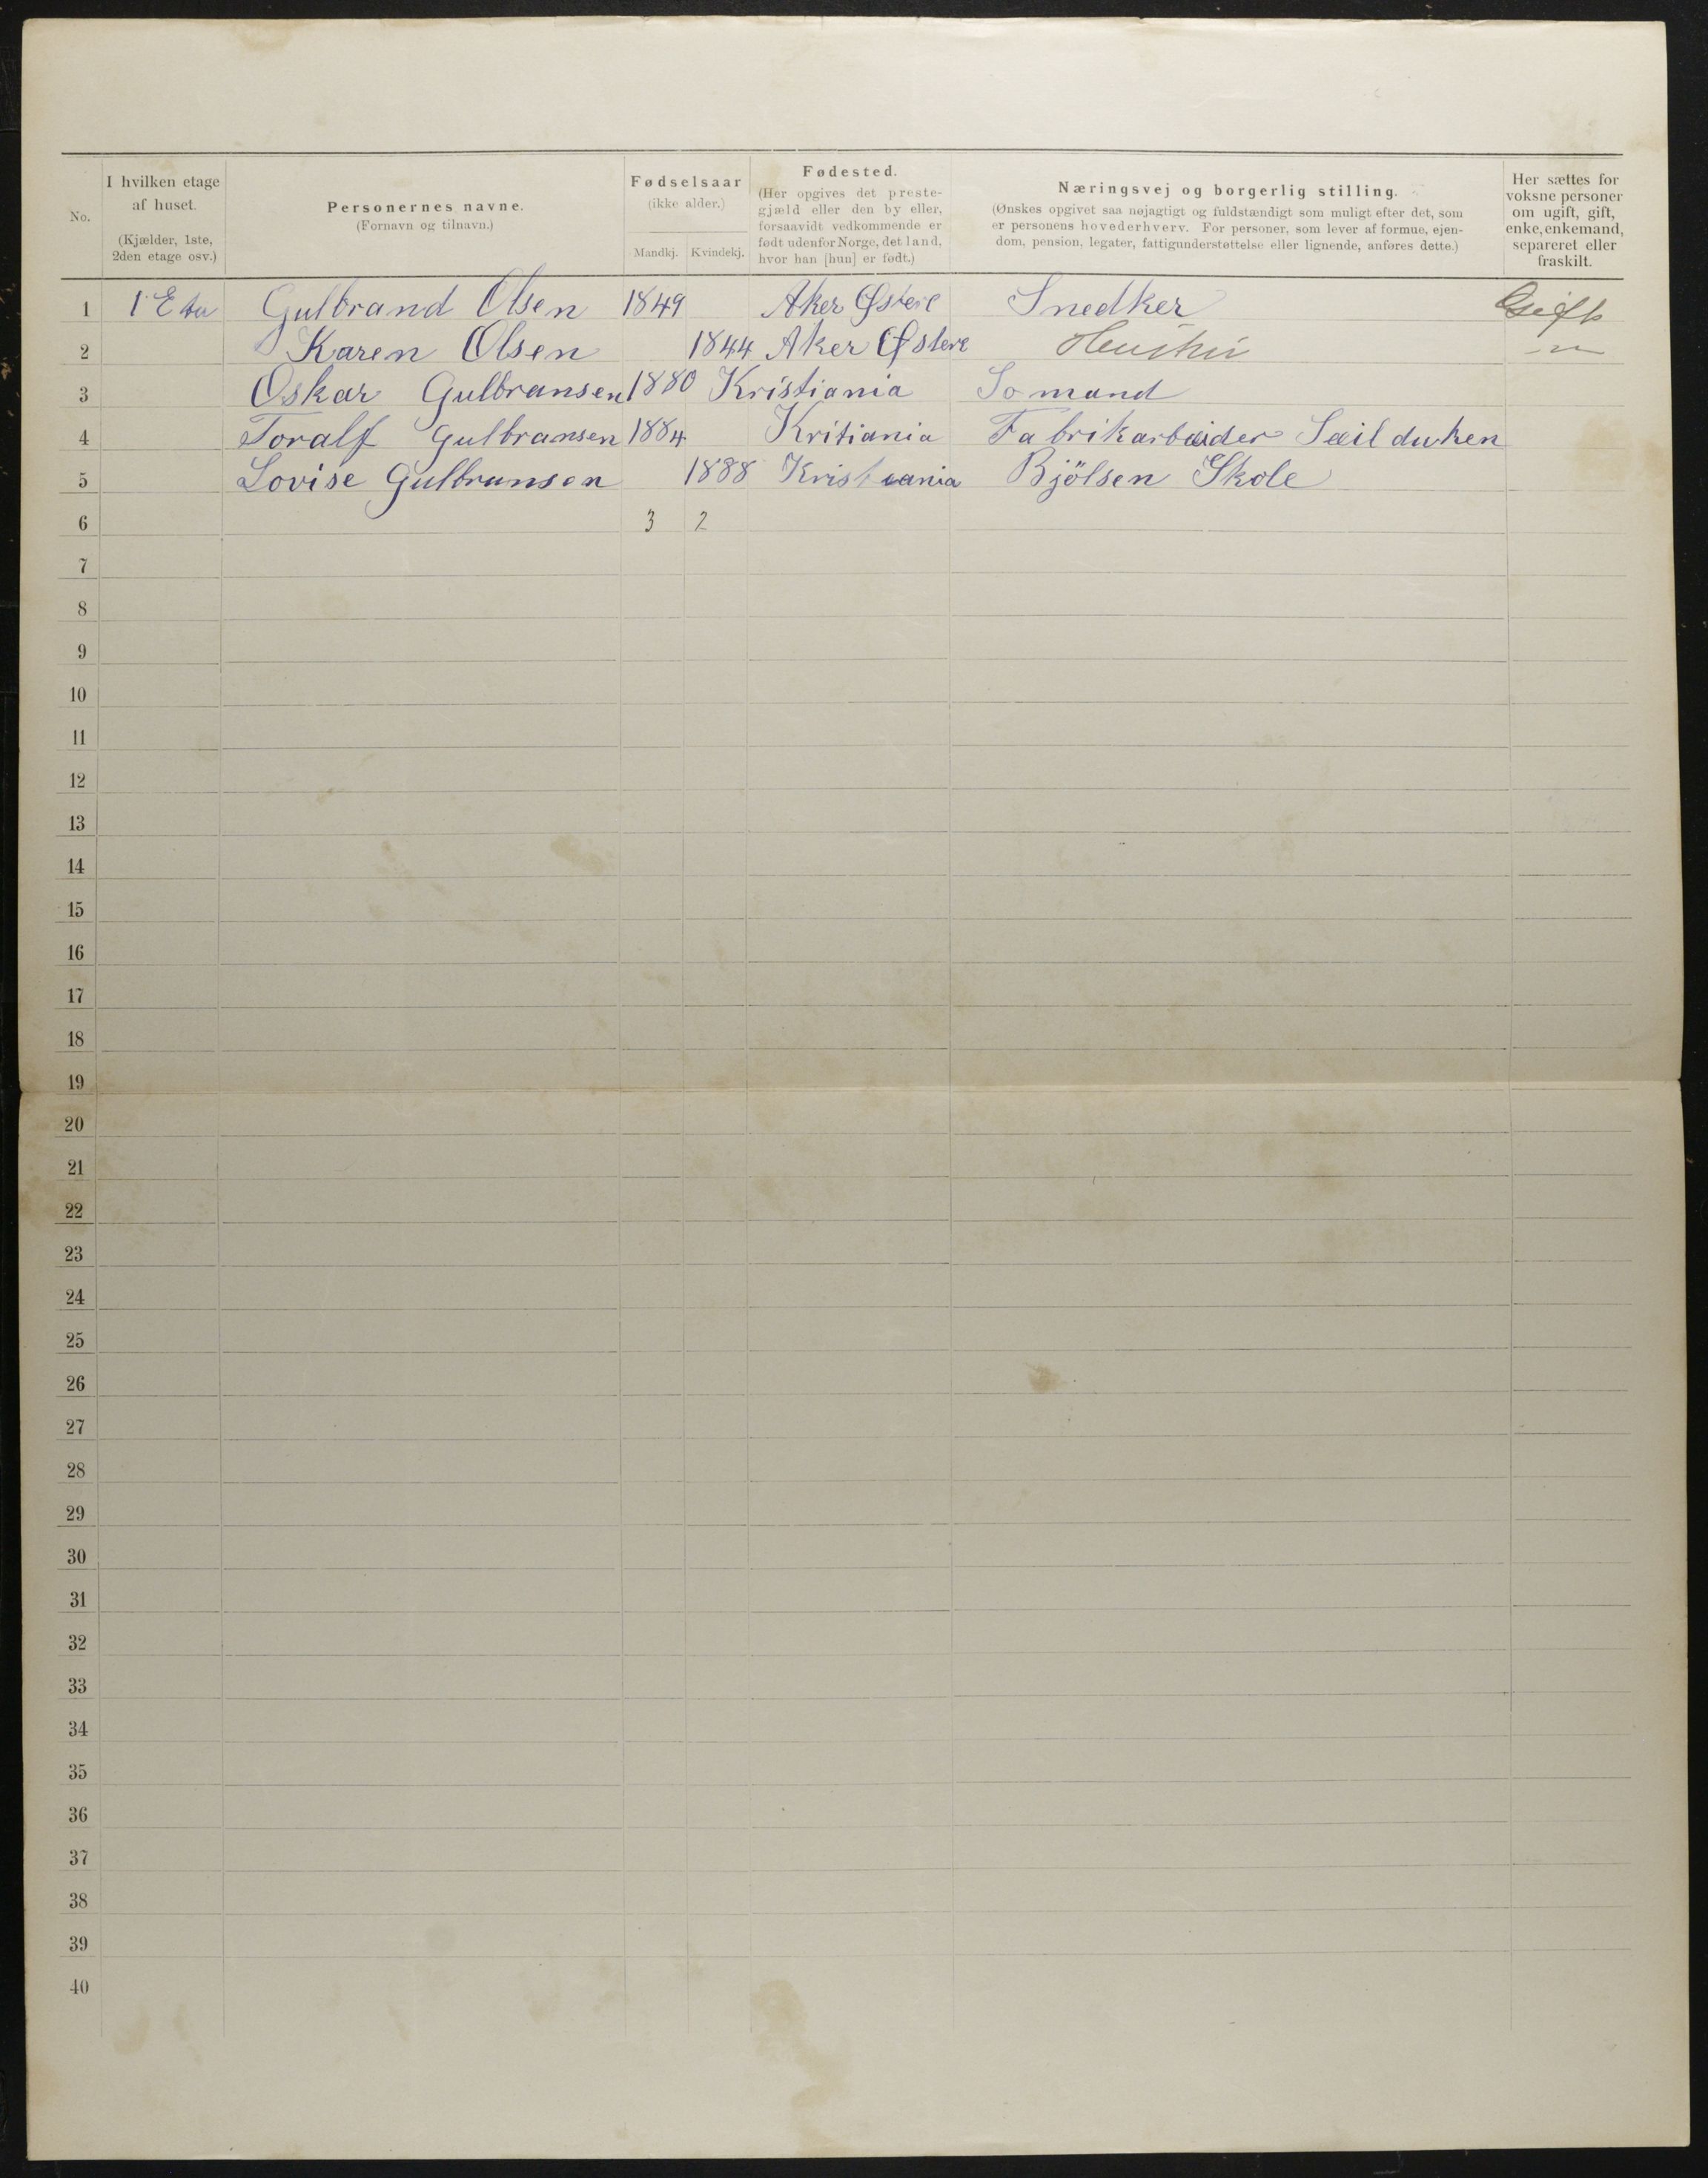 No.
I hvilken etage
af huset.
(Kjælder, 1ste,
2den etage osv.)
Personernes navne.
(Fornavn og tilnavn.)
Fødselsaar
(ikke alder.)
Mandkj. Kvindekj.
Fødested.
(Her opgives det preste-
gjæld eller den by eller,
forsaavidt vedkommende er
født udenfor Norge, det land,
hvor han [hun] er født.)
Næringsvej og borgerlig stilling.
(Ønskes opgivet saa nøjagtigt og fuldstændigt som muligt efter det, som
er personens hovederhverv. For personer, som lever af formue, ejen-
dom, pension, legater, fattigunderstøttelse eller lignende, anføres dette.)
Her sættes for
voksne personer
om ugift, gift,
enke, enkemand,
separeret eller
fraskilt.
1 1 Eta Gulbrand Olsen 1849 Aker Østere Snedker Gift
2 Karen Olsen 1844 Aker Østere Hustru -"-
3 Oskar Gulbransen 1880 Kristiania Somand
4 Toralf Gulbransen 1884 Kritiania Fabrikarbeider Seilduken
5 Lovise Gulbransen 1888 Kristiania Bjölsen Skole
6 3 2
7
8
9
10
11
12
13
14
15
16
17
18
19
20
21
22
23
24
25
26
27
28
29
30
31
32
33
34
35
36
37
38
39
40